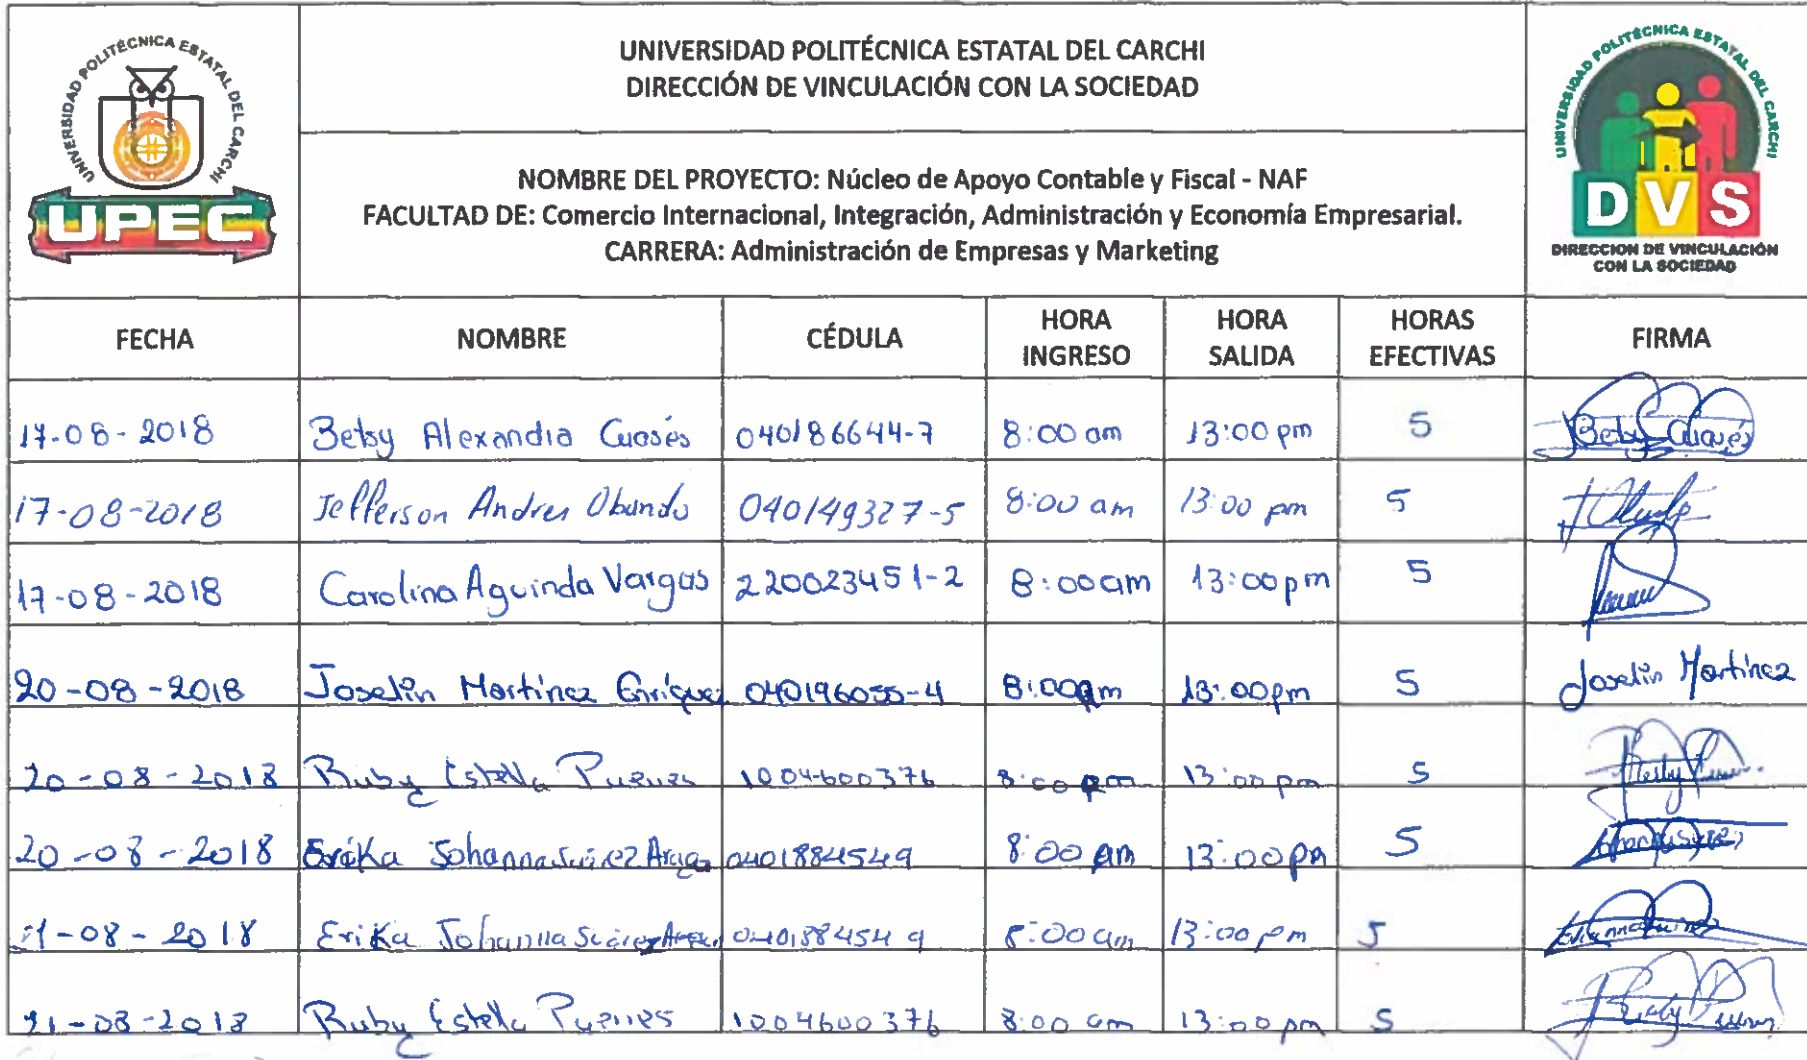 UNIVERSIDAD POLITÉCNICA ESTATAL DEL CARCHI
UPEC
UNIVERSIDAD POLITÉCNICA ESTATAL DEL CARCHI
DIRECCIÓN DE VINCULACIÓN CON LA SOCIEDAD
NOMBRE DEL PROYECTO: Núcleo de Apoyo Contable y Fiscal - NAF
FACULTAD DE: Comercio Internacional, Integración, Administración y Economía Empresarial.
CARRERA: Administración de Empresas y Marketing
UNIVERSIDAD POLITECNICA ESTATAL DEL CARCHI
DVS
DIRECCION DE VINCULACIÓN
CON LA SOCIEDAD
FECHA NOMBRE CÉDULA HORA INGRESO HORA SALIDA HORAS EFECTIVAS FIRMA
17-08-2018 Betsy Alexandra Cuasés 040186644-7 8:00 am 13:00 pm 5 Betsy Cuasés
17-08-2018 Jefferson Andres Obando 040149327-5 8:00 am 13:00 pm 5
17-08-2018 Carolina Aguinda Vargas 220023451-2 8:00am 13:00pm 5
20-08-2018 Joselin Martinez Enriquez 040196055-4 8:00am 13:00pm 5 Joselin Martinez
20-08-2018 Ruby Estella 1004600376 8:00 am 13:00 pm 5
20-08-2018 Erika Johanna Suárez 0401884549 8:00 am 13:00 pm 5
21-08-2018 Erika Johanna Suárez 0401884549 8:00 am 13:00 pm 5
21-08-2018 Ruby Estella 1004600376 8:00 am 13:00 pm 5